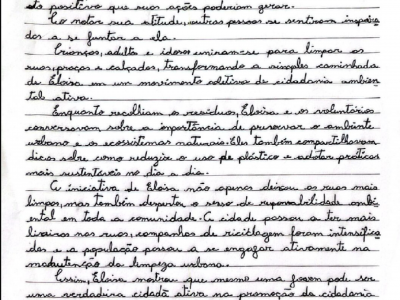 to positivo que suas ações poderiam gerar.
Ao notar sua atitude, outras pessoas se sentiram inspira
das a se juntar a ela.
Crianças, adultos e idosos uniram-se para limpar as
ruas, praças e calçadas, transformando a simples caminhada
de Eloisa em um movimento coletivo de cidadania ambien
tal ativa.
Enquanto recolhiam os resíduos, Eloísa e os voluntários
conversavam sobre a importância de preservar o ambiente
urbano e os ecossistemas naturais. Eles também compartilhavam
dicas sobre como reduzir o uso de plástico e adotar práticas
mais sustentáveis no dia a dia.
A iniciativa de Eloisa não apenas deixou as ruas mais
limpas, mas também desperta o senso de responsabilidade ambi
ental em toda a comunidade. A cidade passou a ter mais
lixeiras nas ruas, campanhas de reciclagem foram intensifica
das e a população passou a se engajar ativamente na
manutenção da limpeza urbana.
Assim, Eloisa mostrou que mesmo uma jovem pode ser
uma verdadeira cidadã ativa na promoção da cidadania